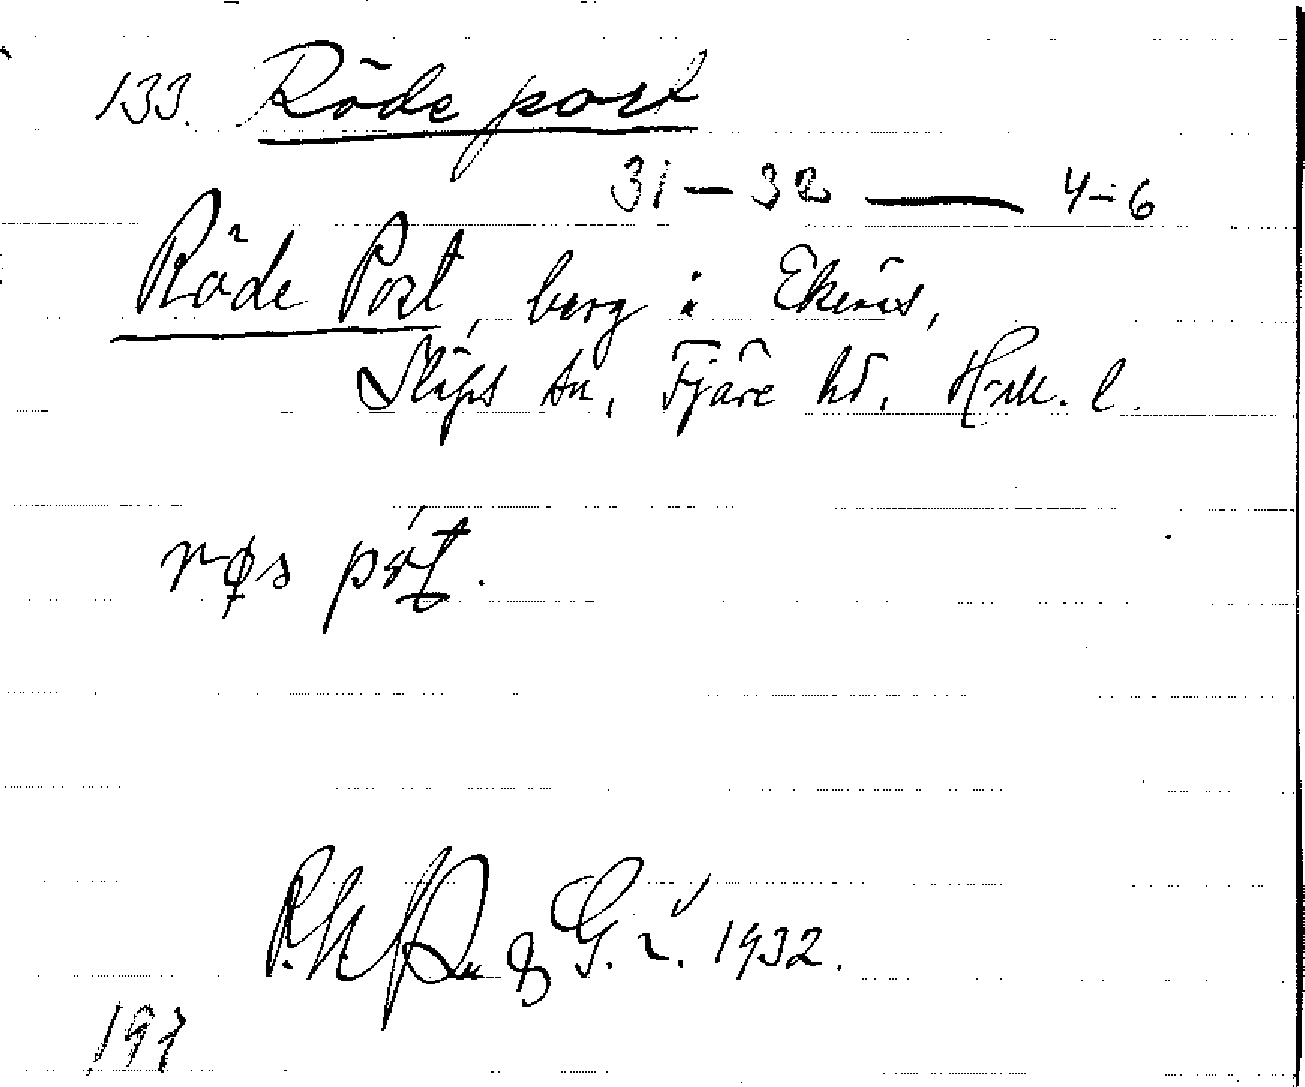 133. Röde port
31 — 32 — 4-6
Röde Port, berg i Ekenäs,
Släps sn, Fjäre hd, Hall. l.
røs pórt.
G. 1932.
197